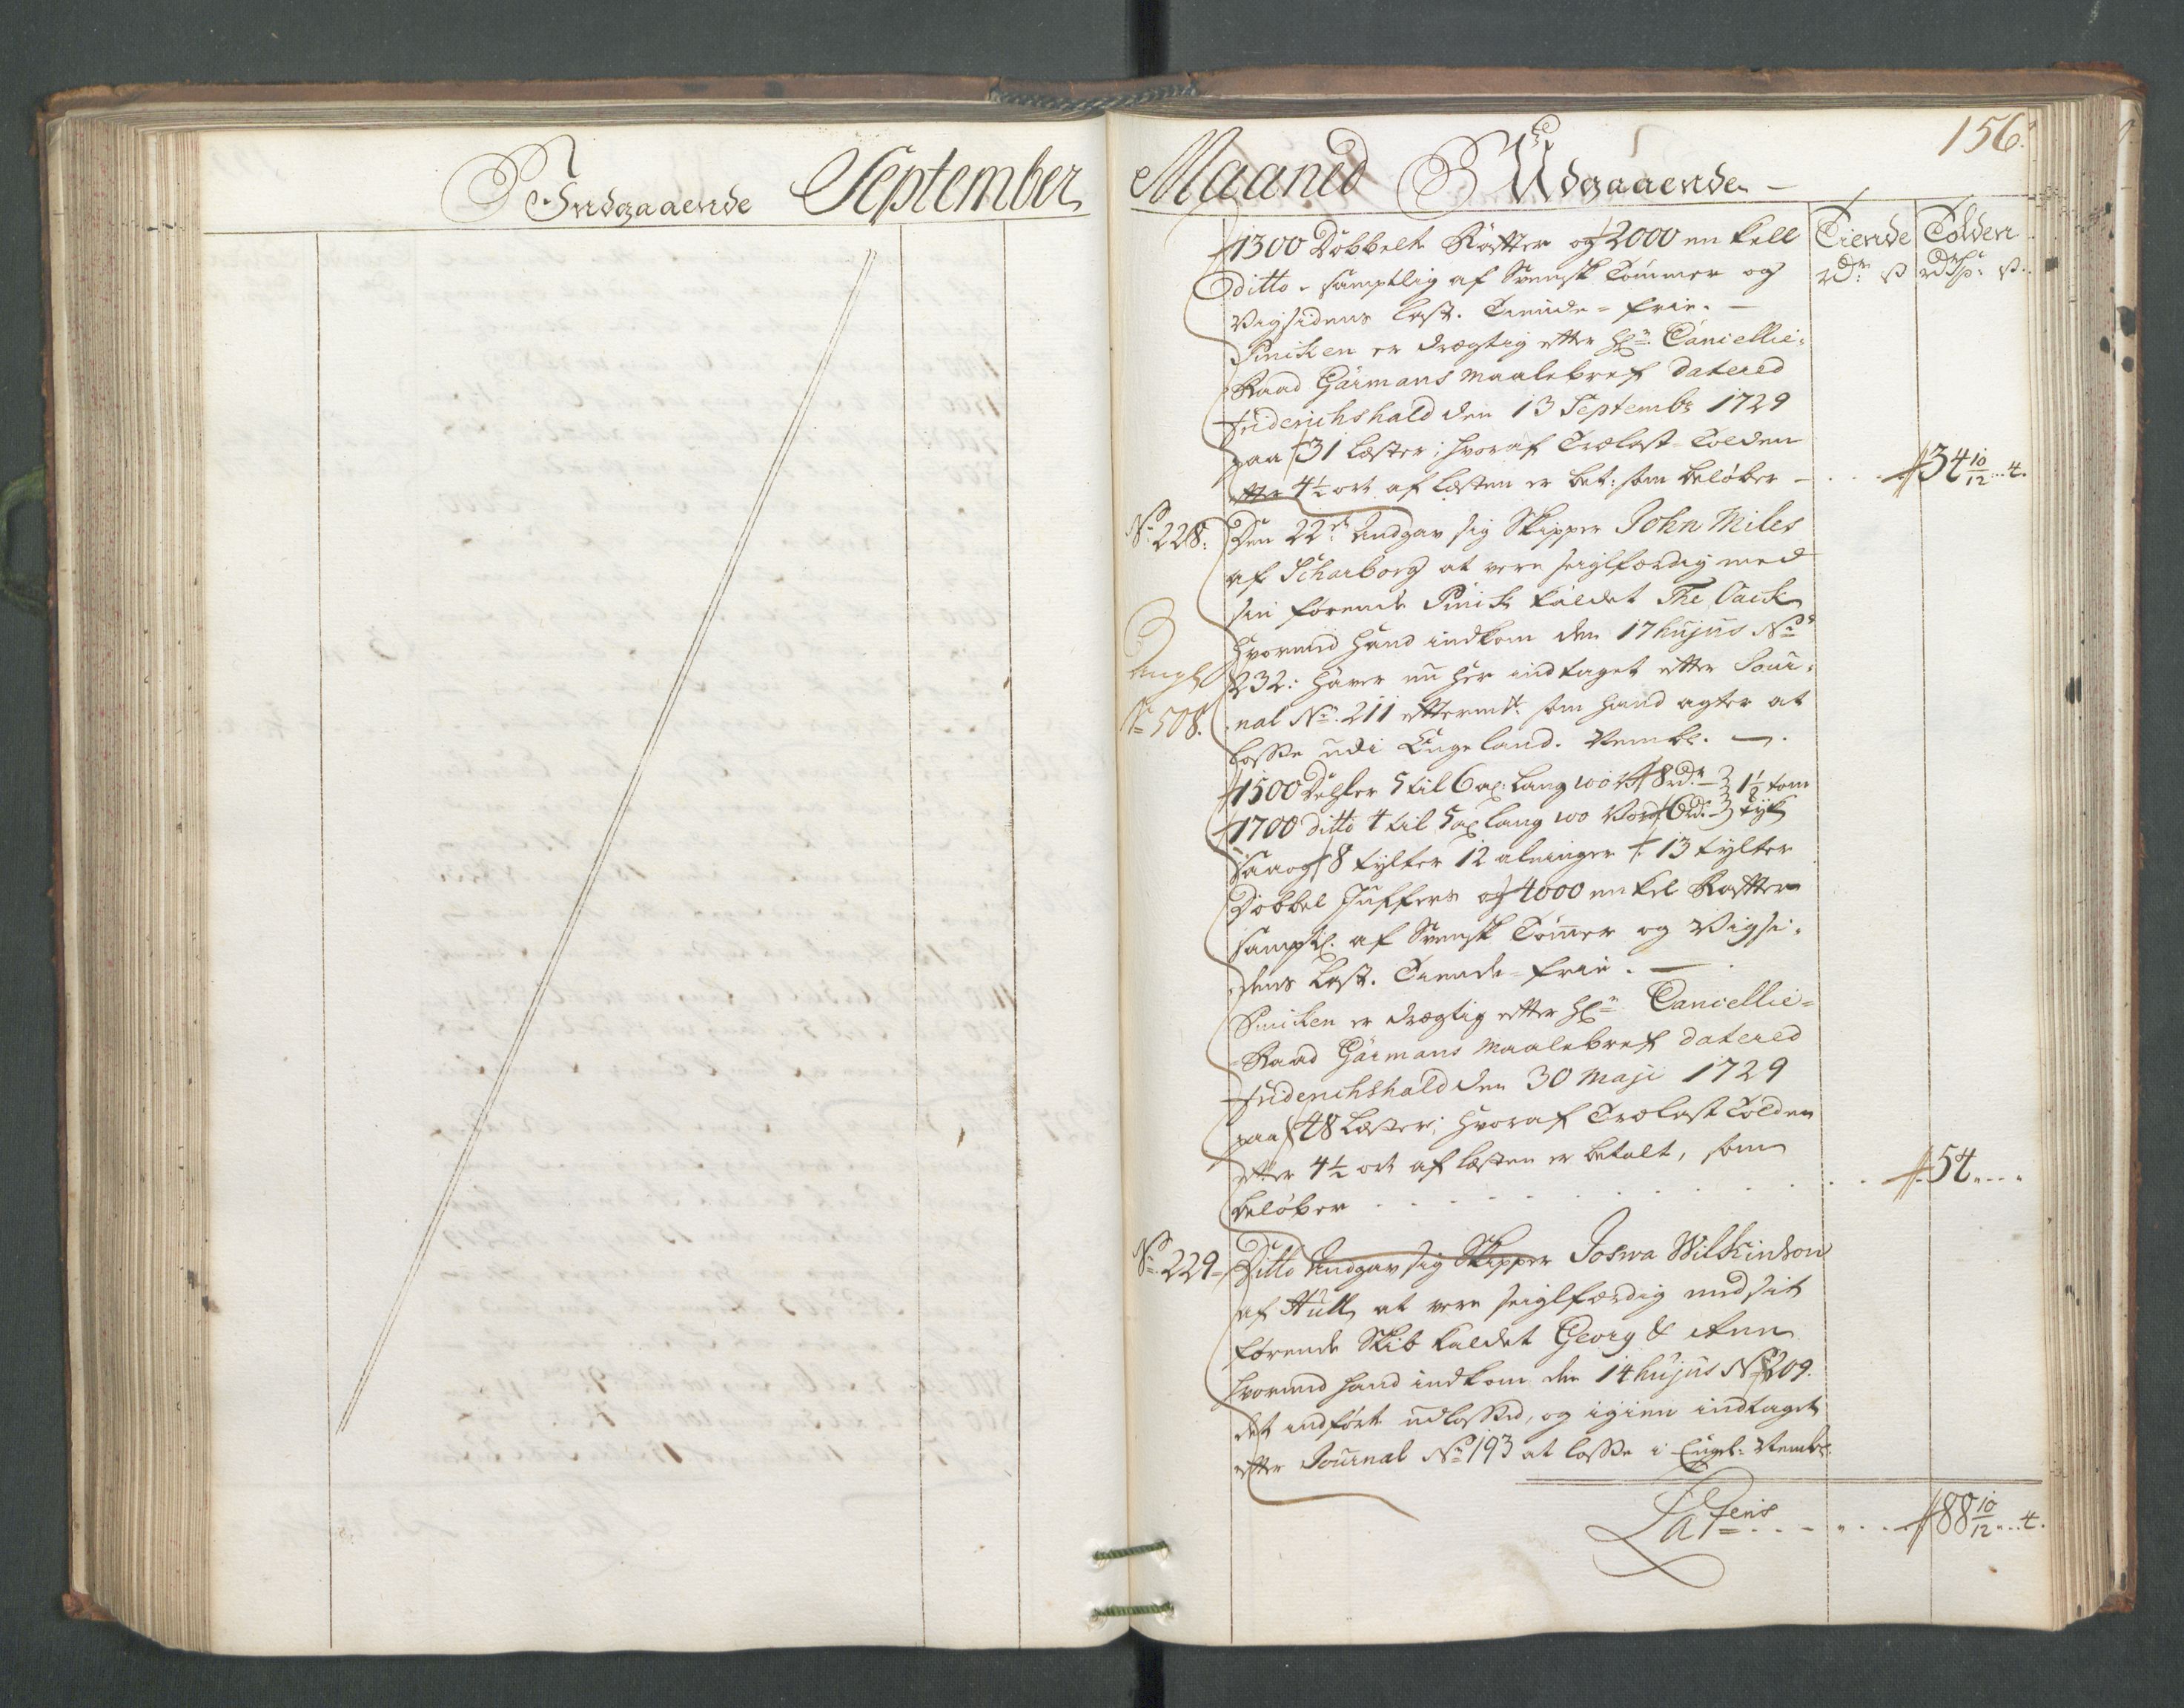 Indgaaende September
Maaned Udgaaende
156.
Tiende Tolden
rdr. ß rdr. sp: ß.
1300 Dobbelt Røtter og 2000 enkell
ditto - samptlig af Svensk Tømmer og
Vigsidens last. Tiende-frie. -
Pinken er drægtig efter Hr. Cancellie-
Raad Garmans Maalebref datered
Friderichshald den 13 Septembr 1729
paa 31 Læster; hvoraf Trælast-Tolden
efter 4½ ort af Læsten er bet: som beløber - . . . 34 10/12 . . . 4.
No. 228. Den 22de Andgav sig Skipper John Miles
af Scharborg at vere seiglfærdig med
sin førende Pink kaldet The Oack
hvormed hand indkom den 17 hujus No.
Angl. 232: haver nu her indtaget efter Jour-
No. 508. nal No. 211 eftermt. som hand agter at
losse udi Engeland. Nembl. -
1500 Dehler 5 til 6 al: lang 100 v. 8 rdr. 1 1/8 tom
1700 ditto 4 til 5 al lang 100 Vord 6 rd. tyk
Saa og 8 tylter 12 alninger & 13 tylter
Dobbel Juffers og 4000 enkel Røtter
samptl. af Svensk Tømmer og Vigsi-
dens Last. Tiende-frie. -
Pinken er drægtig efter Hr. Cancellie-
Raad Garmans Maalebref datered
Friderichshald den 30 Maji 1729
paa 48 Læster; hvoraf Trælast Tolden
efter 4½ ort af Læsten er betalt, som
beløber . . . 54 . . .
No. 229 Ditto Andgav sig Skipper Joswa Wilkindson
af Hull at vere seiglfærdig med sit
førende Skib kaldet Georg & Ann
hvormed hand indkom den 14 hujus No. 209.
det indført udlossed, og igien indtaget
efter Journal No. 193 at losse i Engel: Nembl:
Latens . . . 88 10/12 . . . 4.